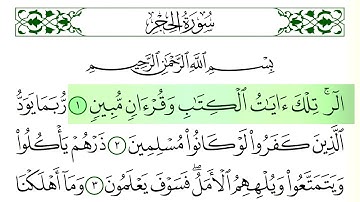 سُورَةُ الحِجْرِ
بِسْمِ اللَّهِ الرَّحْمَٰنِ الرَّحِيمِ
الٓرۚ تِلْكَ ءَايَٰتُ ٱلْكِتَٰبِ وَقُرْءَانٍ مُّبِينٍ ١ رُّبَمَا يَوَدُّ
ٱلَّذِينَ كَفَرُوا۟ لَوْ كَانُوا۟ مُسْلِمِينَ ٢ ذَرْهُمْ يَأْكُلُوا۟
وَيَتَمَتَّعُوا۟ وَيُلْهِهِمُ ٱلْأَمَلُۖ فَسَوْفَ يَعْلَمُونَ ٣ وَمَآ أَهْلَكْنَا